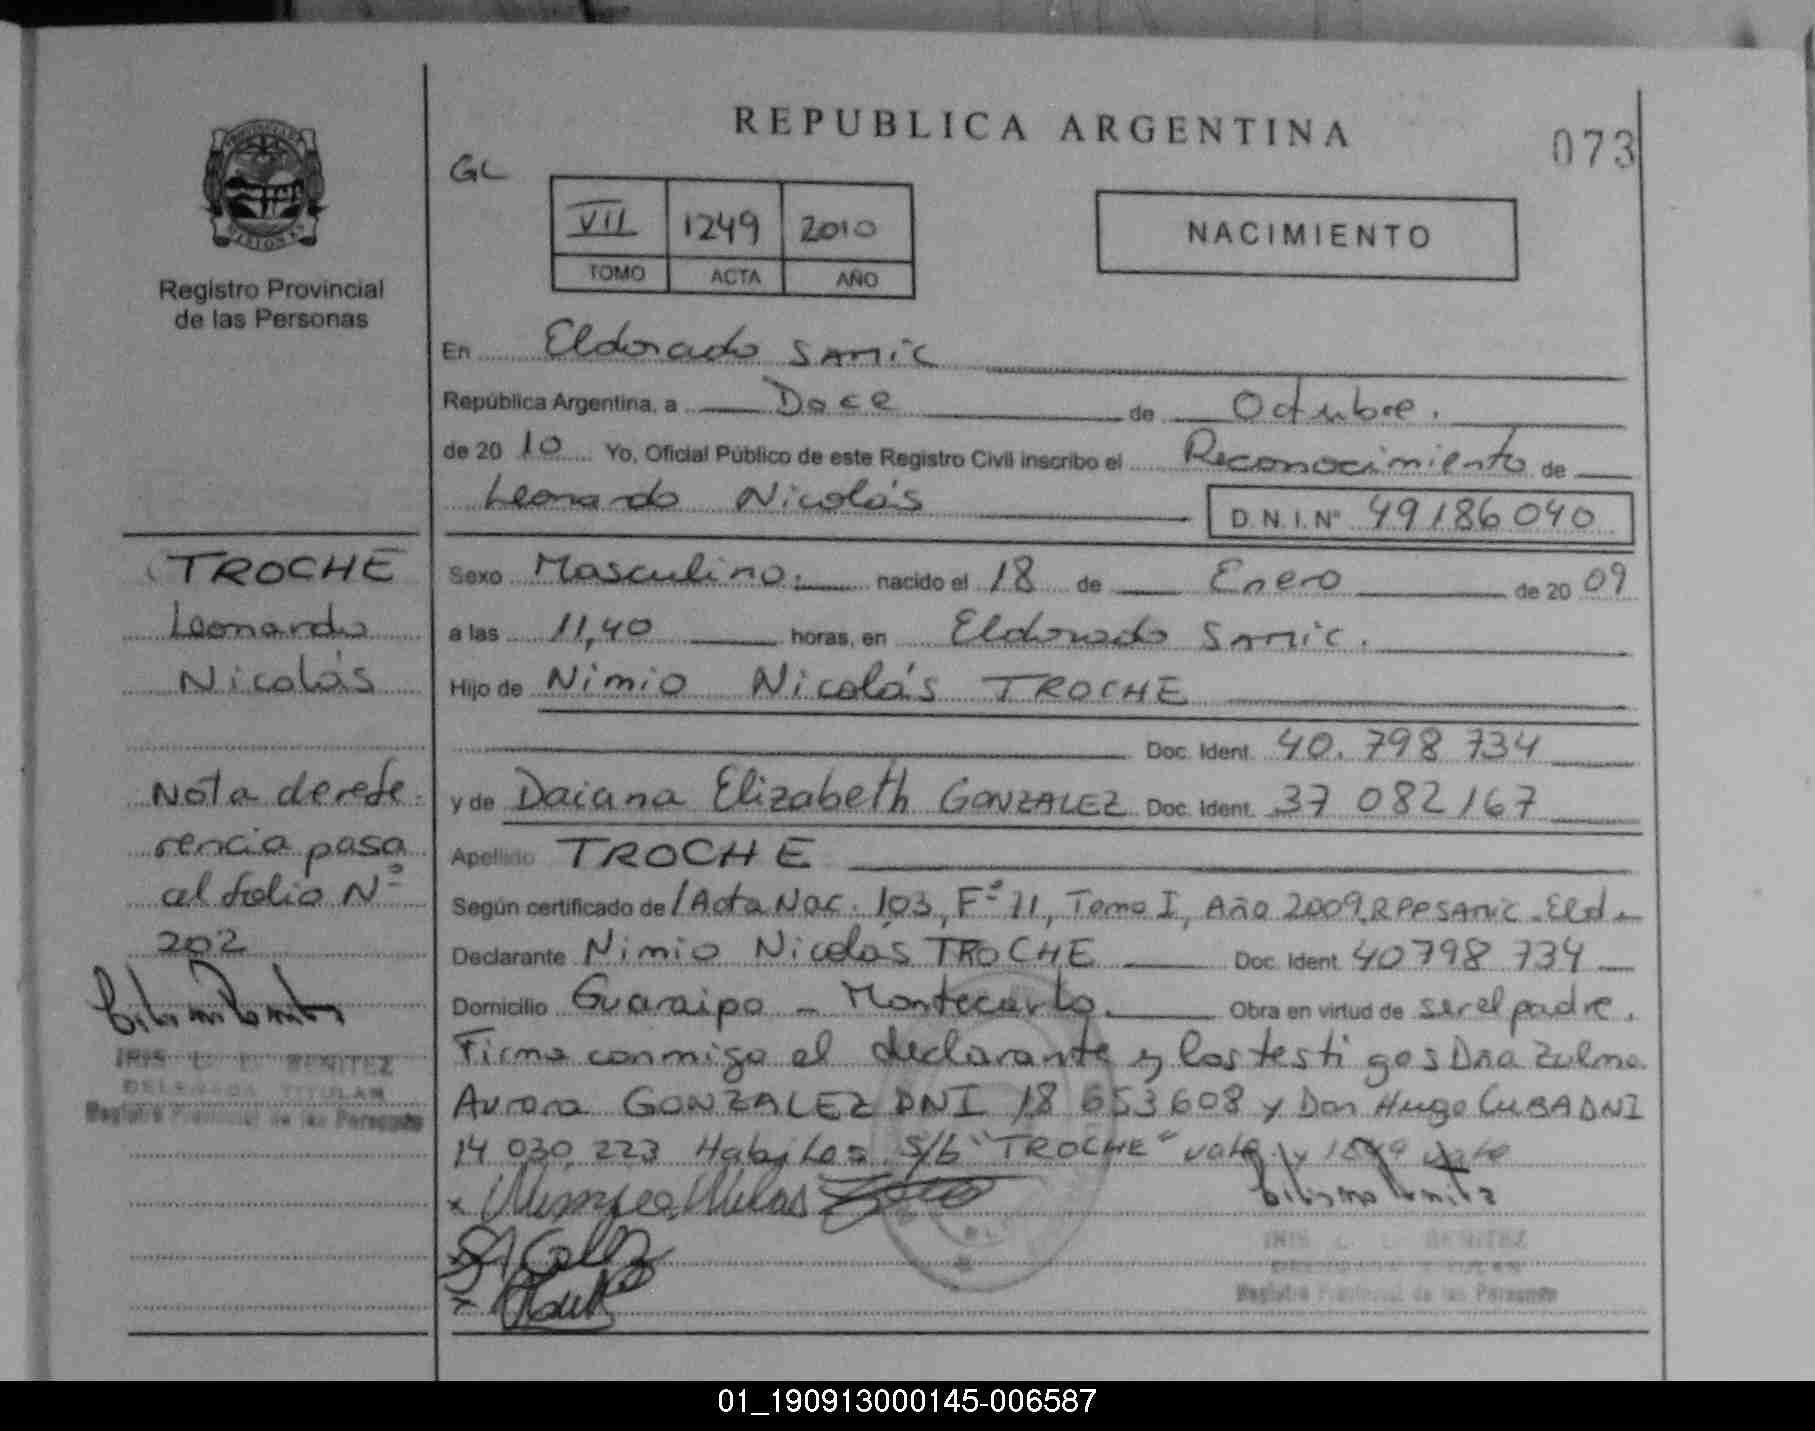 REPUBLICA ARGENTINA
073
GL
VII 1249 2010
TOMO ACTA AÑO
NACIMIENTO
Registro Provincial
de las Personas
En Eldorado SAMIC
República Argentina, a Doce de Octubre.
de 2010 Yo, Oficial Público de este Registro Civil inscribo el Reconocimiento de
Leonardo Nicolás D.N.I. Nº 49186040
Sexo Masculino. nacido el 18 de Enero de 2009
a las 11,40 horas, en Eldorado SAMIC.
Hijo de Nimio Nicolás TROCHE
Doc. Ident. 40.798 734
y de Daiana Elizabeth GONZALEZ Doc. Ident. 37 082 167
Apellido TROCHE
Según certificado de / Acta Nac. 103, Fº 11, Tomo I, Año 2009, RPPSAMIC - Eld.
Declarante Nimio Nicolás TROCHE Doc. Ident 40798 734
Domicilio Guaraipo - Montecarlo. Obra en virtud de ser el padre.
Firma conmigo el declarante y los testigos Dña Zulma
Aurora GONZALEZ DNI 18 653608 y Don Hugo CUBA DNI
14 030 223 Habiles S/b "TROCHE" vale y 1249 vale
IRIS L. L. BENITEZ
DELEGADA TITULAR
Registro Provincial de las Personas
TROCHE
Leonardo
Nicolás
Nota de refe-
rencia pasa
al folio Nº
202
IRIS L. L. BENITEZ
DELEGADA TITULAR
Registro Provincial de las Personas
01_190913000145-006587